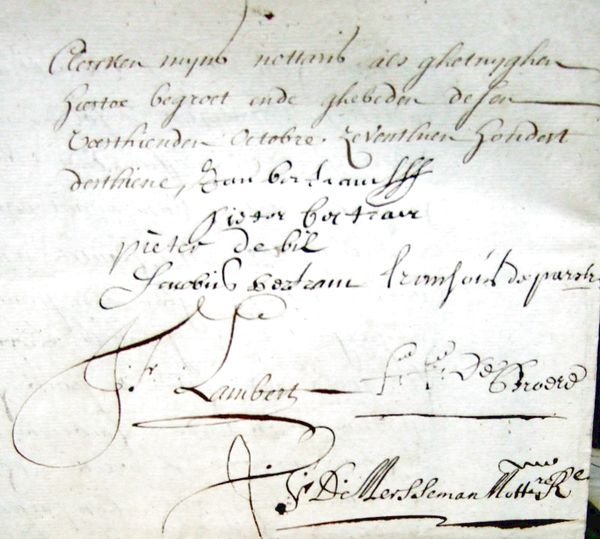 Clercken mijns nottaris als ghetuyghen
hiertoe begroet ende ghebeden desen
Veerthienden Octobre zeventhien hondert
derthiene, Jan bertram
pieter bertram
pieter de bil
Jacobus bertram fransois de
Lambert De Broere
J: De Mersseman Nottre Re